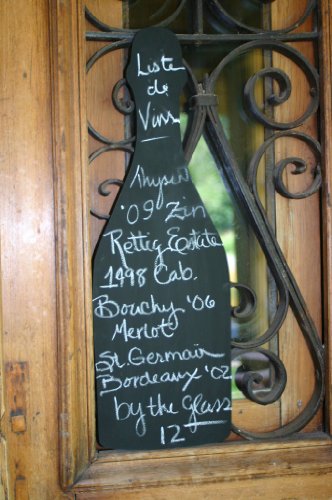 Liste
de
Vins
'09 Zin
Rettig Estate
1998 Cab.
Bouchy '06
Merlot
St. Germain
Bordeaux '02
by the glass
12